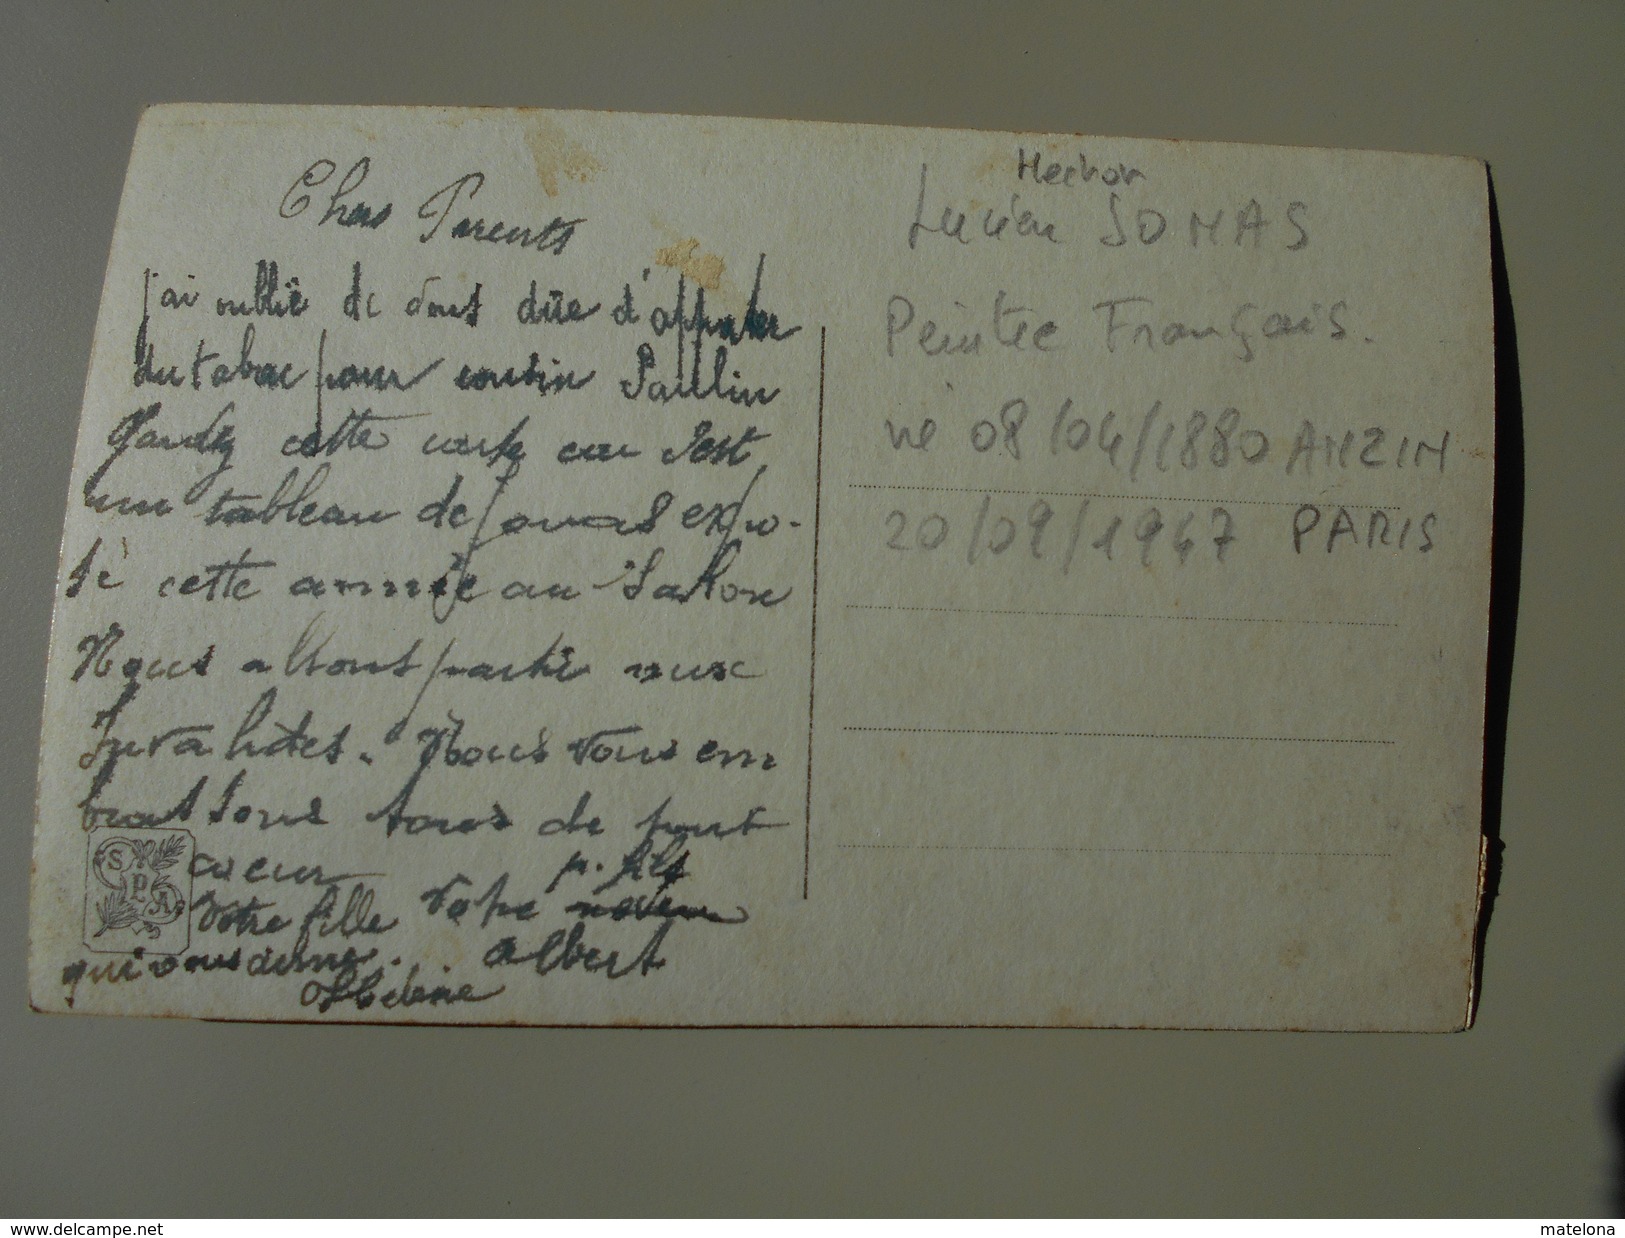 Chers Parents
j'ai oublié de vous dire d'apporter
du tabac pour cousin Paulin
Gardez cette carte car s'est
un tableau de Jonas expo-
sé cette année au Salon
Nous allons partir aux
Invalides. Nous vous em
brassons tous de tout
coeur
p. fils
Votre fille Votre neveu
qui vous aime. Albert
Hélène
SPA
Hector
Lucien JONAS
Peintre Français.
né 08/04/1880 ANZIN
20/09/1947 PARIS
www.delcampe.net
matelona